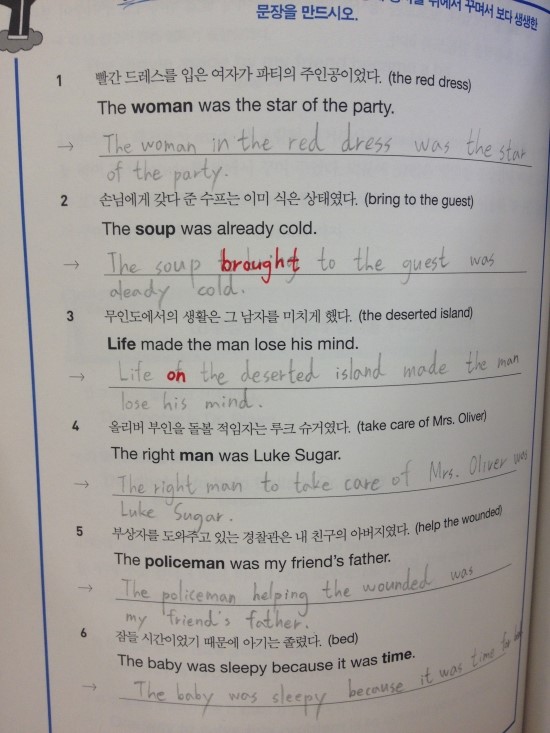 뒤에서 꾸며서 보다 생생한
문장을 만드시오.
1 빨간 드레스를 입은 여자가 파티의 주인공이었다. (the red dress)
The woman was the star of the party.
→ The woman in the red dress was the star
of the party.
2 손님에게 갖다 준 수프는 이미 식은 상태였다. (bring to the guest)
The soup was already cold.
→ The soup brought to the guest was
aleady cold.
3 무인도에서의 생활은 그 남자를 미치게 했다. (the deserted island)
Life made the man lose his mind.
→ Life on the deserted island made the man
lose his mind.
4 올리버 부인을 돌볼 적임자는 루크 슈거였다. (take care of Mrs. Oliver)
The right man was Luke Sugar.
→ The right man to take care of Mrs. Oliver was
Luke Sugar.
5 부상자를 도와주고 있는 경찰관은 내 친구의 아버지였다. (help the wounded)
The policeman was my friend's father.
→ The policeman helping the wounded was
my friend's father.
6 잠들 시간이었기 때문에 아기는 졸렸다. (bed)
The baby was sleepy because it was time.
→ The baby was sleepy because it was time for bed